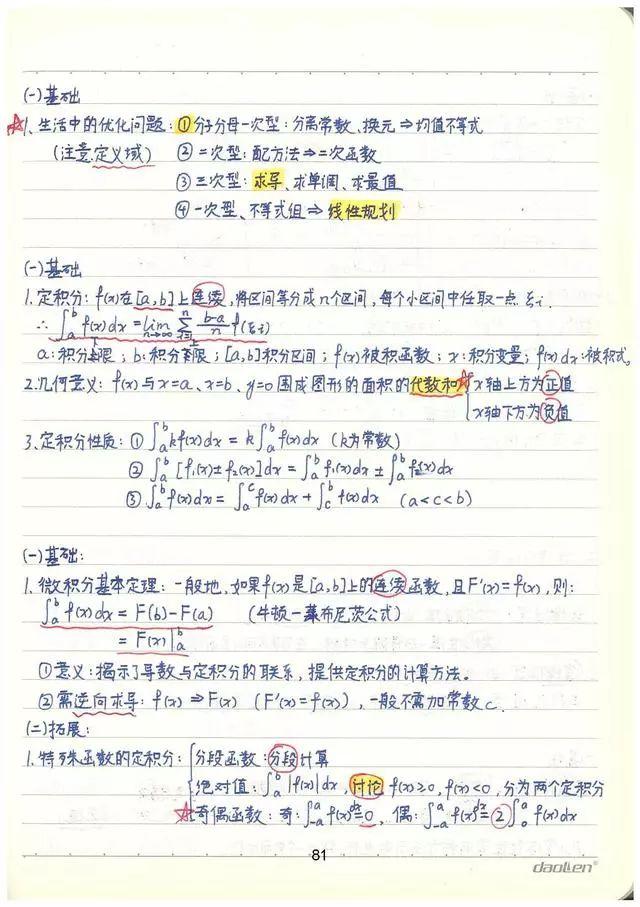 (一)基础
☆1、生活中的优化问题：①分子分母一次型：分离常数、换元⇒均值不等式
(注意定义域) ②二次型：配方法⇒二次函数
③三次型：求导、求单调、求最值
④一次型、不等式组⇒线性规划
(一)基础
1.定积分：f(x)在[a,b]上连续，将区间等分成n个区间，每个小区间中任取一点ξi.
∴ ∫_a^b f(x)dx = lim_{n→∞} Σ_{i=1}^n (b-a)/n f(ξi)
a:积分下限；b:积分上限；[a,b]积分区间；f(x)被积函数；x:积分变量；f(x)dx:被积式。
2.几何意义：f(x)与x=a、x=b、y=0围成图形的面积的代数和☆{x轴上方为正值
x轴下方为负值
3.定积分性质：①∫_a^b kf(x)dx = k∫_a^b f(x)dx (k为常数)
②∫_a^b [f₁(x)±f₂(x)]dx = ∫_a^b f₁(x)dx ± ∫_a^b f₂(x)dx
③∫_a^b f(x)dx = ∫_a^c f(x)dx + ∫_c^b f(x)dx (a<c<b)
(一)基础：
1.微积分基本定理：一般地，如果f(x)是[a,b]上的连续函数，且F'(x)=f(x)，则：
∫_a^b f(x)dx = F(b)-F(a) (牛顿一莱布尼茨公式)
= F(x)|_a^b
①意义：揭示了导数与定积分的联系，提供定积分的计算方法。
②需逆向求导：f(x)⇒F(x) (F'(x)=f(x))，一般不需加常数c.
(二)拓展：
1.特殊函数的定积分：{分段函数：分段计算
绝对值：∫_a^b |f(x)|dx，讨论f(x)≥0,f(x)<0，分为两个定积分
☆奇偶函数：奇：∫_{-a}^a f(x)dx=0，偶：∫_{-a}^a f(x)dx=2∫_0^a f(x)dx
81
daollen®